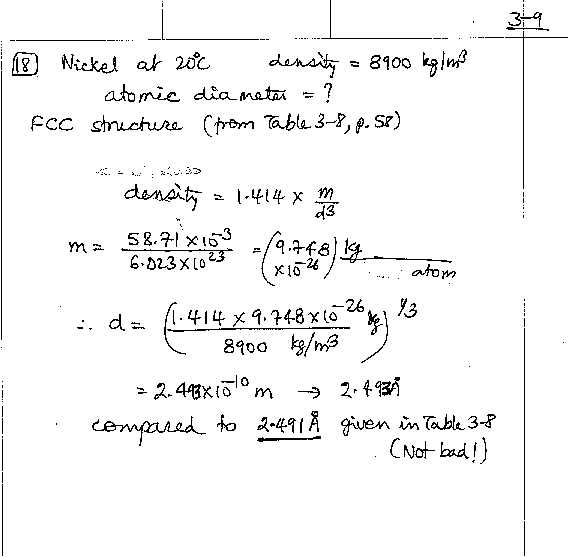 3-9
18 Nickel at 20°C density = 8900 kg/m³
atomic diameter = ?
FCC structure (from Table 3-8, p. 58)
density = 1.414 × m/d³
m = 58.71 × 10⁻³ / 6.023 × 10²³ = (9.748 × 10⁻²⁶) kg / atom
∴ d = (1.414 × 9.748 × 10⁻²⁶ kg / 8900 kg/m³)^1/3
= 2.493 × 10⁻¹⁰ m → 2.493 Å
compared to 2.491 Å given in Table 3-8
(Not bad!)